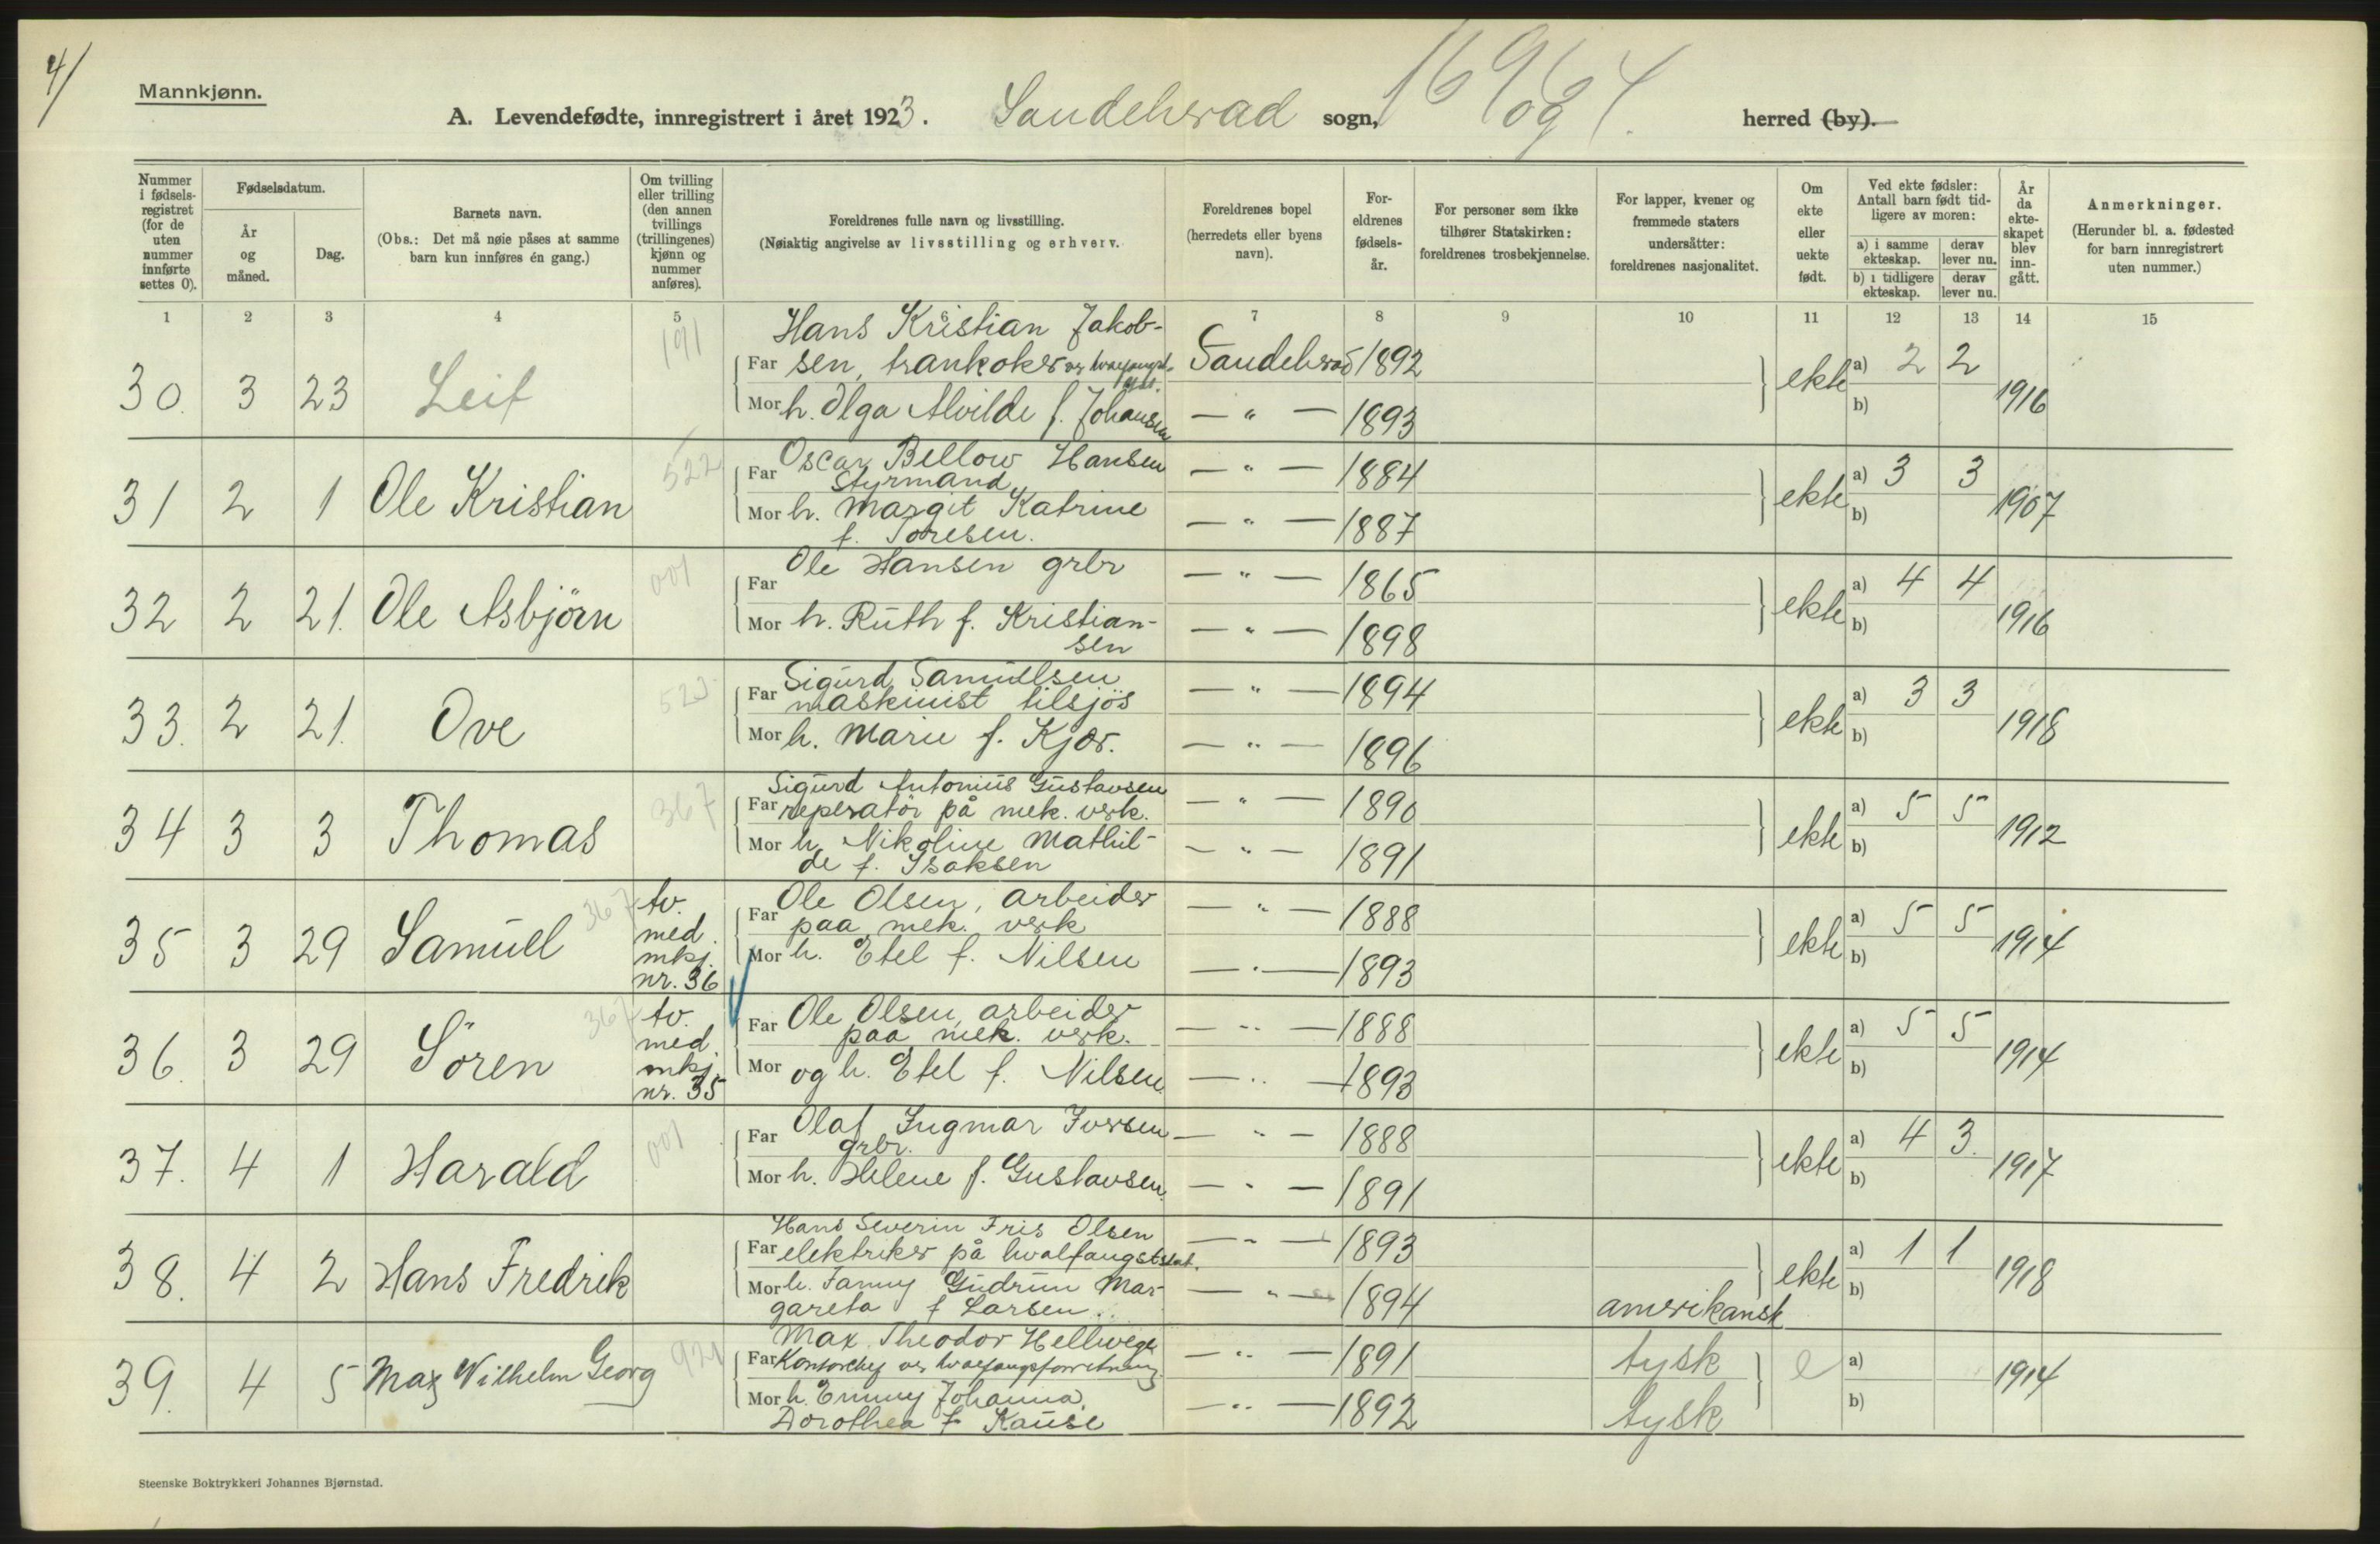 4/
Mannkjønn.
A. Levendefødte, innregistrert i året 1923. Sandeherad sogn, og herred (by).
16964.
Nummer i fødsels-registret (for de uten nummer innførte settes 0).
Fødselsdatum.
År og måned.
Dag.
Barnets navn.
(Obs.: Det må nøie påses at samme barn kun innføres én gang.)
Om tvilling eller trilling (den annen tvillings (trillingenes) kjønn og nummer anføres).
Foreldrenes fulle navn og livsstilling.
(Nøiaktig angivelse av livsstilling og erhverv.
Foreldrenes bopel (herredets eller byens navn).
For-eldrenes fødsels-år.
For personer som ikke tilhører Statskirken: foreldrenes trosbekjennelse.
For lapper, kvener og fremmede staters undersåtter: foreldrenes nasjonalitet.
Om ekte eller uekte født.
Ved ekte fødsler: Antall barn født tid-ligere av moren:
a) i samme ekteskap.
derav lever nu.
b) i tidligere ekteskap.
derav lever nu.
År da ekte-skapet blev inn-gått.
Anmerkninger.
(Herunder bl. a. fødested for barn innregistrert uten nummer.)
1 2 3 4 5 6 7 8 9 10 11 12 13 14 15
30. 3 23 Leif 191
Hans Kristian Jakob-
Far sen, trankoker Sandeherad 1892 ekte a) 2 2 1916
Mor h. Olga Alvilde f. Johansen — " — 1893 b)
31 2 1 Ole Kristian 522
Far Oscar Bellow Hansen — " — 1884 ekte a) 3 3 1907
Styrmand
Mor h. Margit Katrine — " — 1887 b)
f. Toresen.
32 2 21. Ole Asbjörn 001
Far Ole Hansen grbr — " — 1865 ekte a) 4 4 1916
Mor h. Ruth f. Kristian- — " — 1898 b)
sen
33. 2 21. Ove 523
Sigurd Samuelsen
Far maskinist tilsjös — " — 1894 ekte a) 3 3 1918
Mor h. Marie f. Kjær. — " — 1896 b)
34 3 3 Thomas 367
Sigurd Antonius Gustavsen
Far reperatör på mek. verk. — " — 1890 ekte a) 5 5 1912
Mor h. Nikoline Mathil- — " — 1891 b)
de f. Isaksen
35 3 29 Samuel 367 tv. med. mkj. nr. 36
Far Ole Olsen, arbeider — " — 1888 ekte a) 5 5 1914
paa mek. verk
Mor h. Etel f. Nilsen — " — 1893 b)
36. 3 29 Sören 367 tv. med. mkj. nr. 35
Far Ole Olsen, arbeider — " — 1888 ekte a) 5 5 1914
paa mek. verk.
Mor og h. Etel f. Nilsen — " — 1893 b)
37. 4 1 Harald 001
Far Olaf Ingmar Iversen — " — 1888 ekte a) 4 3. 1917
grbr.
Mor h. Helene f. Gustavsen. — " — 1891 b)
38. 4 2 Hans Fredrik
Hans Severin Fris Olsen
Far elektriker på hvalfangstskt. — " — 1893 ekte a) 1 1 1918
Mor h. Fanny Gudrun Mar- — " — 1894 amerikansk b)
gareta f Larsen.
39. 4 5 Max Wilhelm Georg 921
Max Theodor Hellwege
Far Kontorchef ver hvalfangstforretning — " — 1891 tysk e a) 1914
Mor h. Emmy Johanna — " — 1892 tysk b)
Dorothea f Kause
Steenske Boktrykkeri Johannes Bjørnstad.